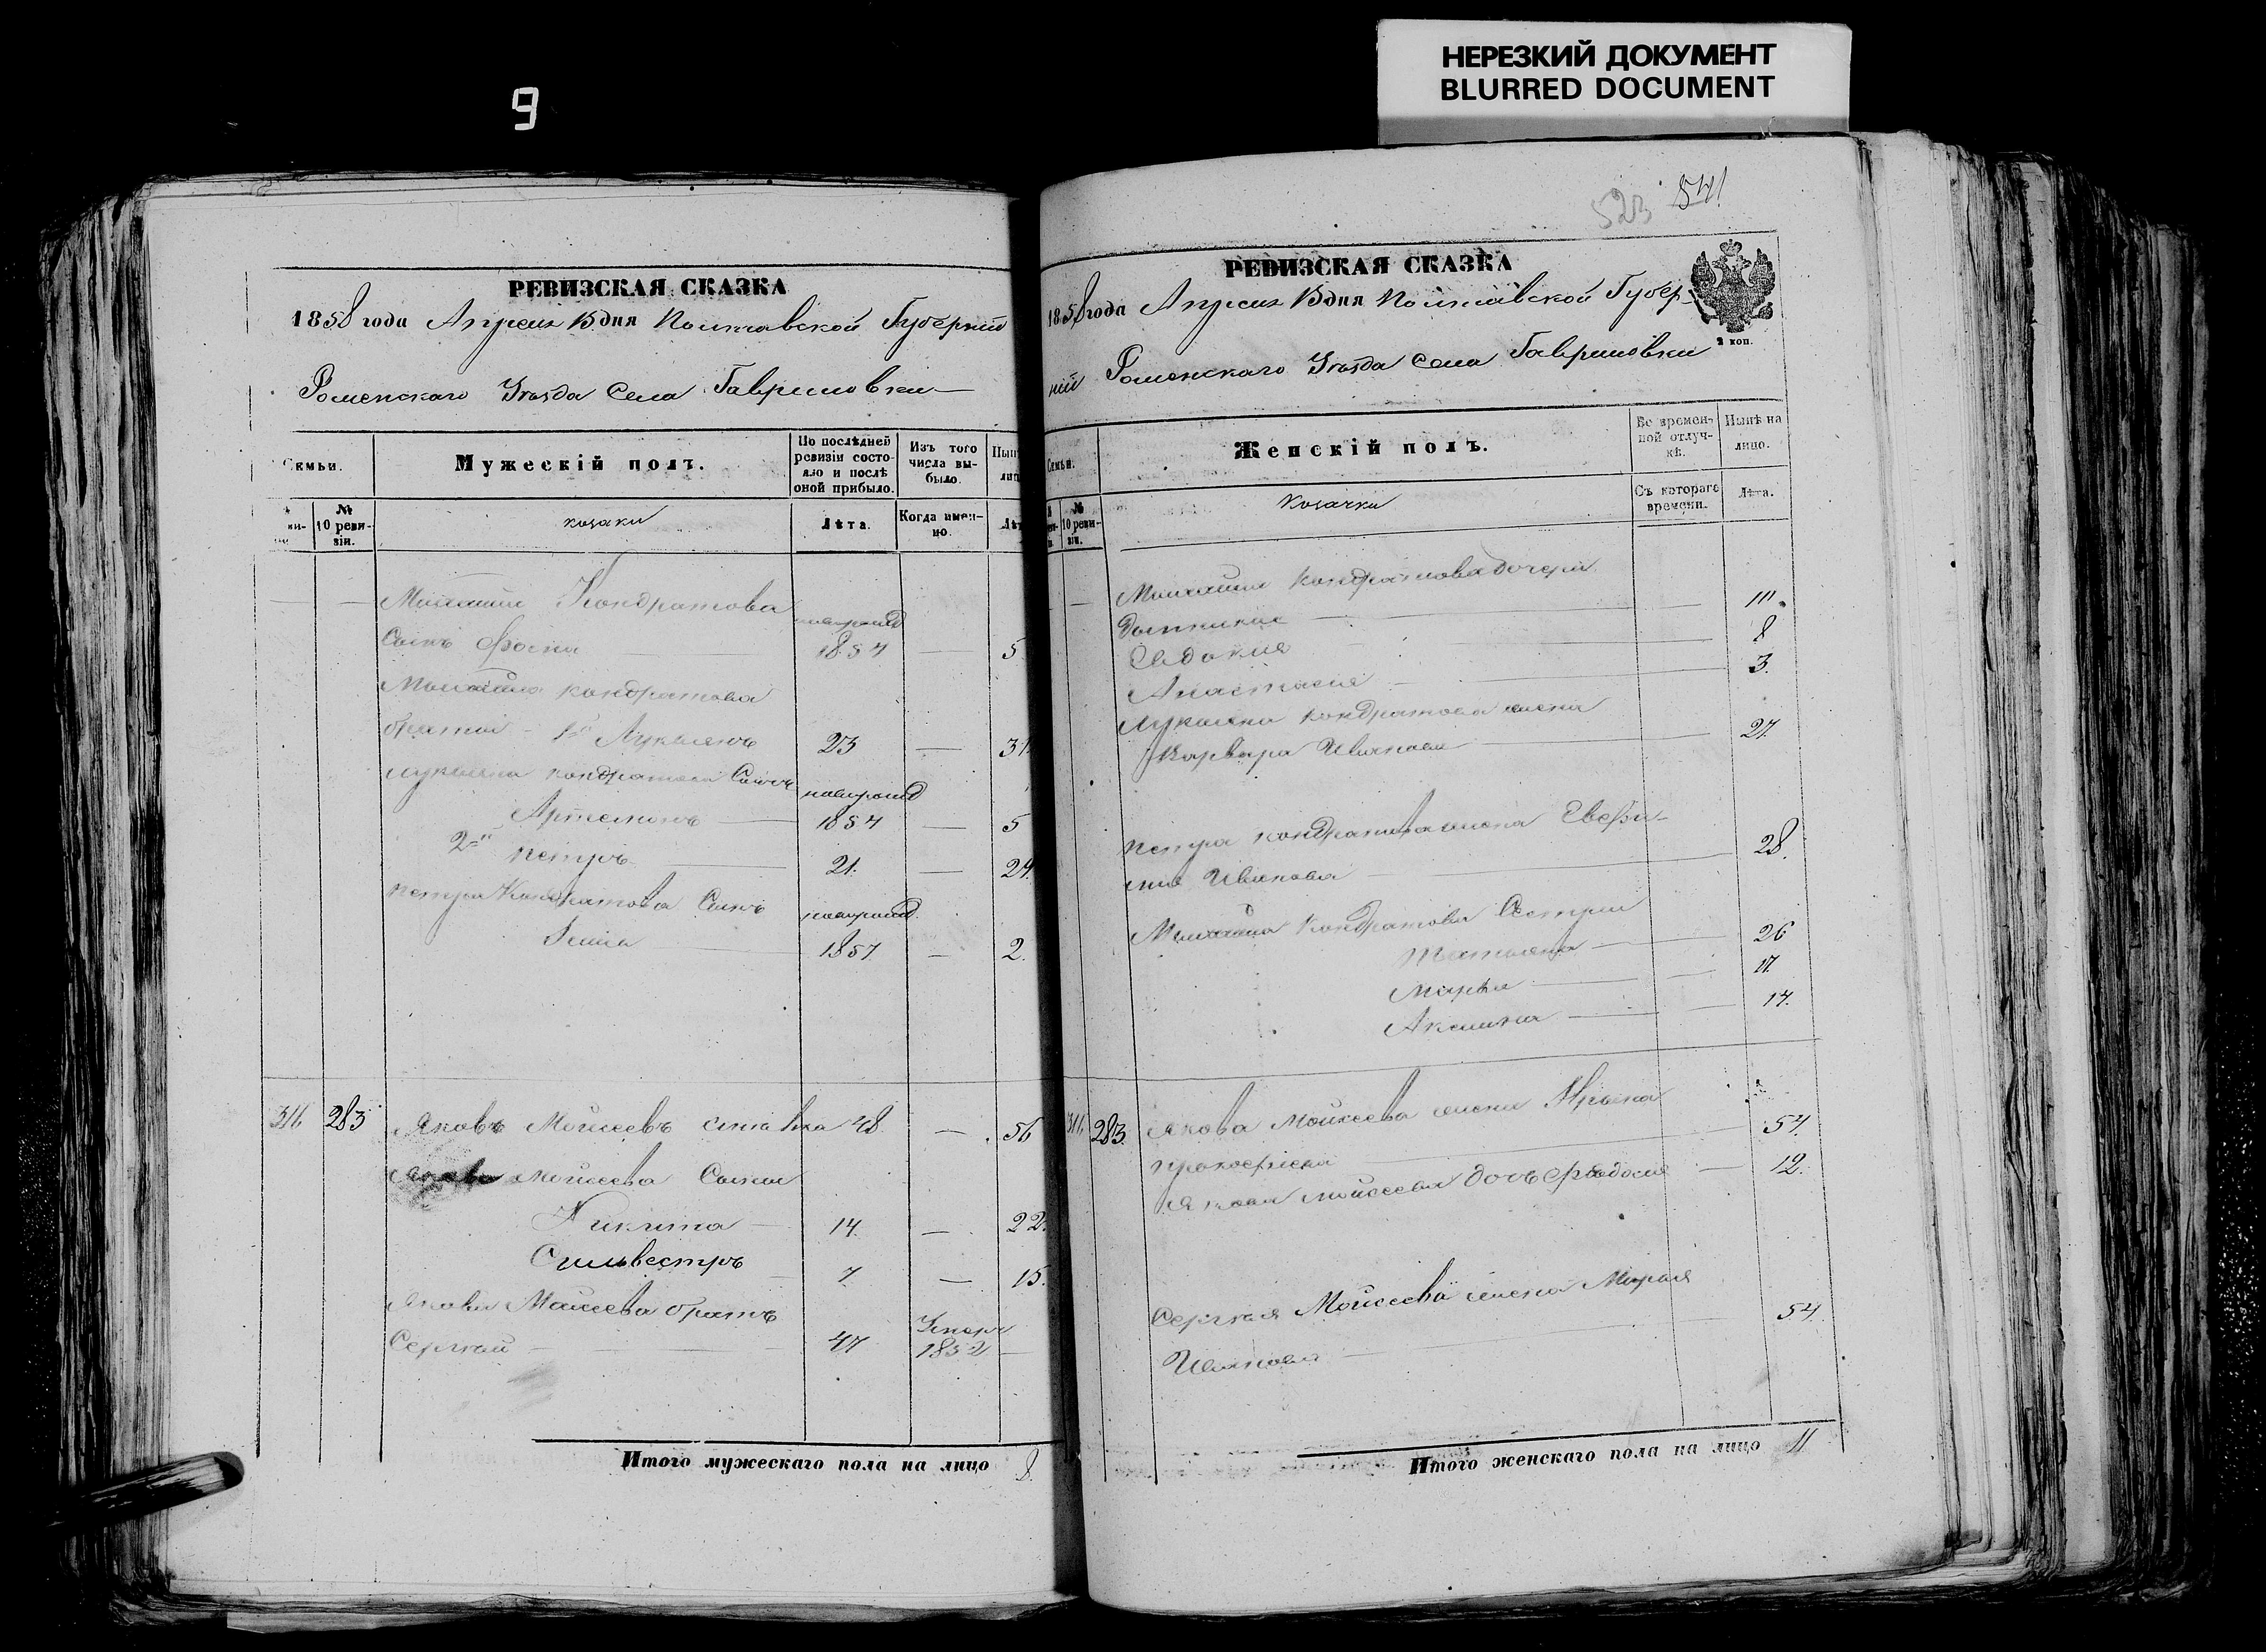 НЕРЕЗКИЙ ДОКУМЕНТ
BLURRED DOCUMENT
9
523 541
РЕВИЗСКАЯ СКАЗКА
1858 года Апреля 15 дня Полтавской Губернии
Роменскаго Уезда Села Гавриловки
Семьи.
Мужескій полъ.
По послѣдней ревизіи состояло и послѣ оной прибыло.
Изъ того числа выбыло.
Нынѣ
№ 10 ревизіи.
козаки
Лѣта.
Когда именно.
Михаила Кондратова
новорожд
Сынъ Фома 1854 — 5
Михаила Кондратова
братья 1й Лукьянъ 23 — 31
Лукьяна Кондратова Сынъ новорожд
Артемонъ 1854 — 5
2й Петръ 21. — 29.
Петра Кондратова Сынъ новорожд.
1857 — 2.
316 283 Яковъ Моисеевъ 48 — 56
Якова Моисеева Сыны
Никита 14. — 22.
Сильвестръ 7 — 15.
Якова Моисеева братъ
Сергѣй 47 Умеръ 1852 —
Итого мужескаго пола на лицо 8.
РЕВИЗСКАЯ СКАЗКА
1858 года Апреля 15 дня Полтавской Губер-
ніи Роменскаго Уезда Села Гавриловки
2 коп.
Семьи.
Женскій полъ.
Во временной отлучкѣ.
Нынѣ на лицо.
№ 10 ревизіи.
Козачки
Съ котораго времени.
Лѣта.
Михаила Кондратова дочери
Домникия
Евдокия 8
Анастасия 3.
Лукьяна Кондратова жена
Варвара Иванова 27.
Петра Кондратова жена Евфи-
мия Иванова 28.
Михаила Кондратова Сестры
Татьяна 26
Марья 17.
Аксинья 14.
316 283 Якова Моисеева жена Ирына
Прокофьева 54.
Якова Моисеева дочь Федосия 12.
Сергѣя Моисеева жена Марья
Иванова 54.
Итого женскаго пола на лицо 11